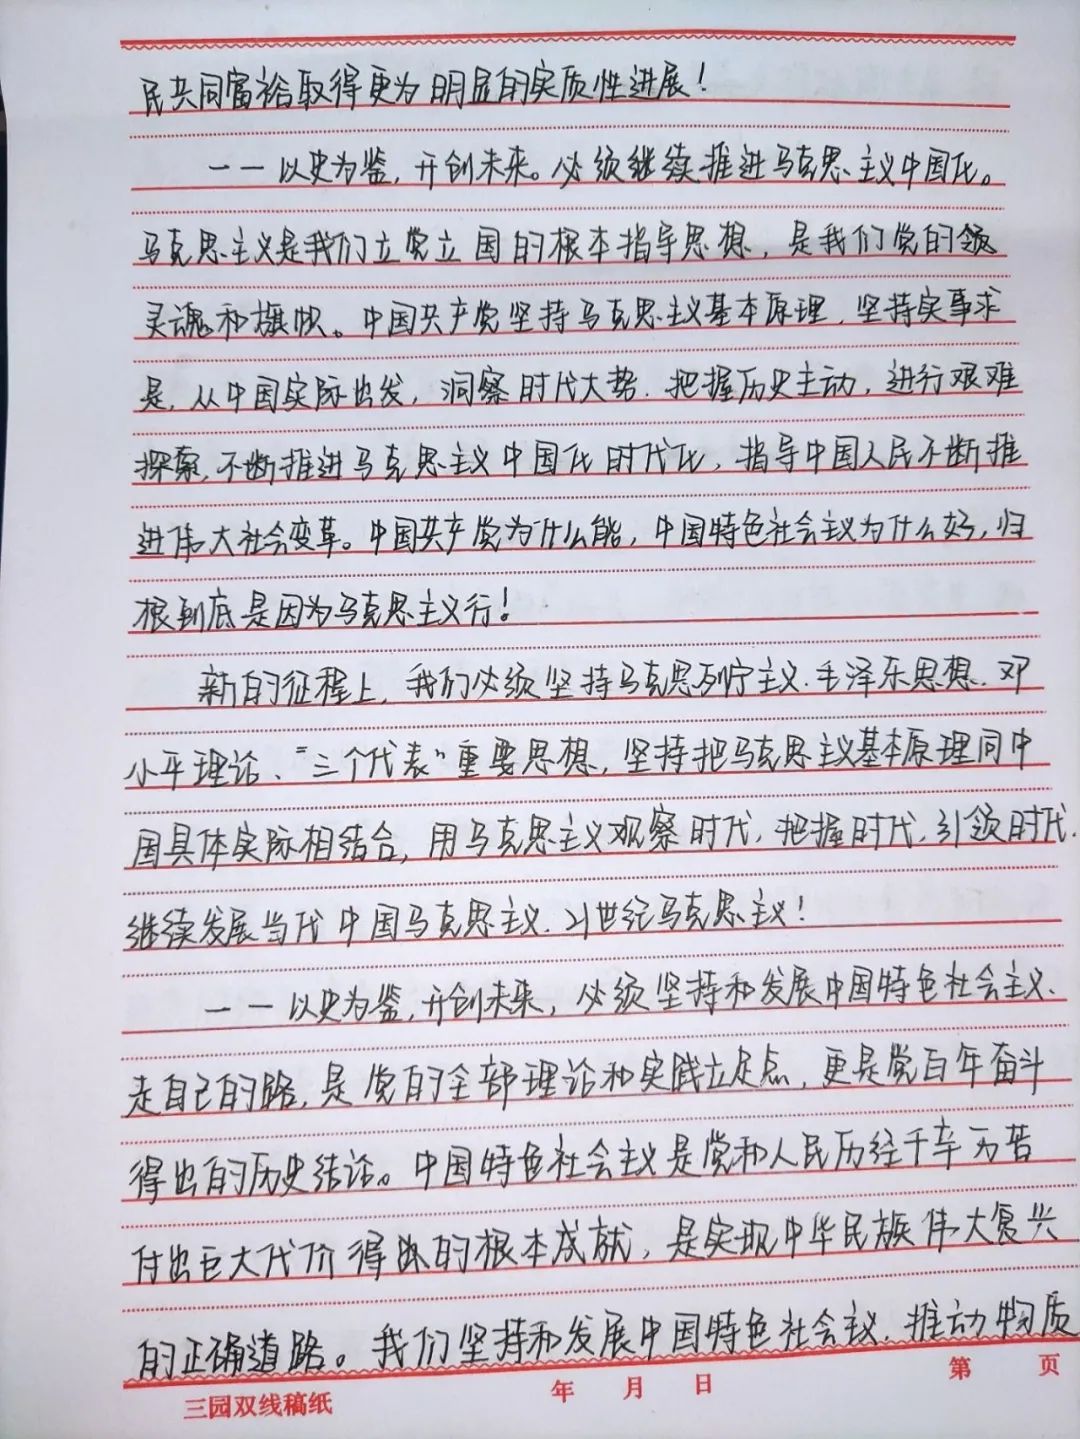 民共同富裕取得更为明显的实质性进展！
——以史为鉴，开创未来。必须继续推进马克思主义中国化。
马克思主义是我们立党立国的根本指导思想，是我们党的领
灵魂和旗帜。中国共产党坚持马克思主义基本原理，坚持实事求
是，从中国实际出发，洞察时代大势，把握历史主动，进行艰难
探索，不断推进马克思主义中国化时代化，指导中国人民不断推
进伟大社会变革。中国共产党为什么能，中国特色社会主义为什么好，归
根到底是因为马克思主义行！
新的征程上，我们必须坚持马克思列宁主义、毛泽东思想、邓
小平理论、“三个代表”重要思想，坚持把马克思主义基本原理同中
国具体实际相结合，用马克思主义观察时代，把握时代，引领时代，
继续发展当代中国马克思主义、21世纪马克思主义！
——以史为鉴，开创未来，必须坚持和发展中国特色社会主义、
走自己的路，是党的全部理论和实践立足点，更是党百年奋斗
得出的历史结论。中国特色社会主义是党和人民历经千辛万苦
付出巨大代价得出的根本成就，是实现中华民族伟大复兴
的正确道路。我们坚持和发展中国特色社会主义、推动物质
三园双线稿纸 年 月 日 第 页